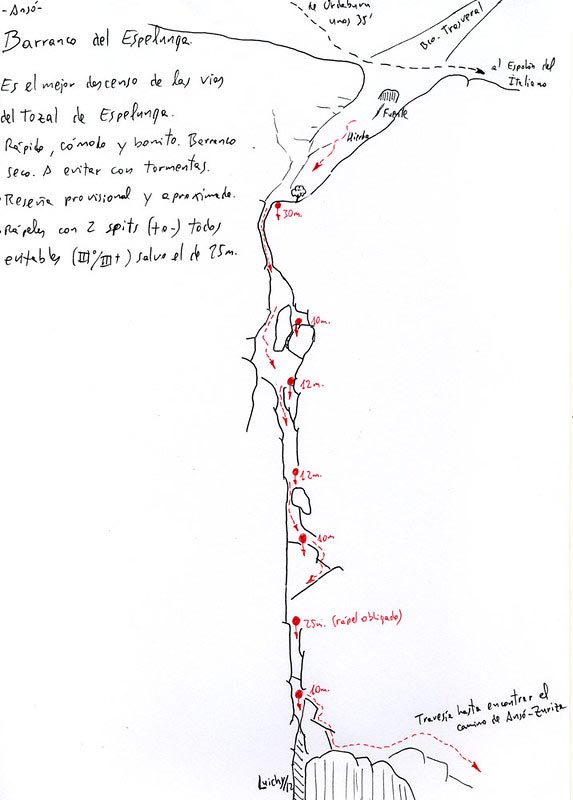 -Ansó-
de Urdaburu
unos 35'
Barranco del Espelunga.
Bco. Trasveral
al Espolón del
Italiano
Es el mejor descenso de las vías
del Tozal de Espelunga.
Rápido, cómodo y bonito. Barranco
seco. A evitar con tormentas.
Reseña provisional y aproximada.
Rápeles con 2 spits (+o-) todos
evitables (IIIº/III+) salvo el de 25m.
Fuente
Hierba
30m.
10m.
12m.
12m.
10m
25m. (rápel obligado)
10m.
Travesía hasta encontrar el
camino de Ansó-Zuriza
Luichy/12